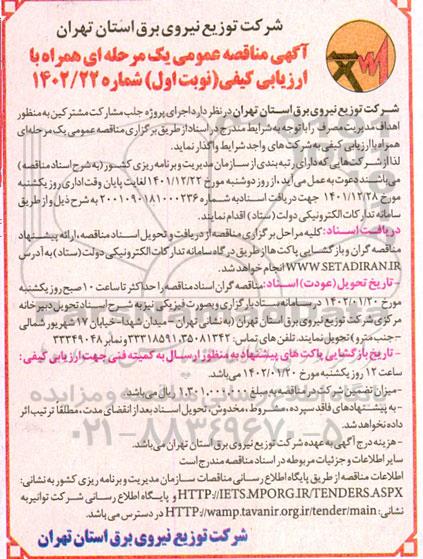 شرکت توزیع نیروی برق استان تهران
آگهی مناقصه عمومی یک مرحله ای همراه با
ارزیابی کیفی (نوبت اول) شماره ۱۴۰۲/۲۲
شرکت توزیع نیروی برق استان تهران در نظر دارد اجرای پروژه جلب مشارکت مشترکین به منظور
اهداف مدیریت مصرف را با توجه به شرایط مندرج در اسناد از طریق برگزاری مناقصه عمومی یک مرحله‌ای
همراه با ارزیابی کیفی به شرکت های واجد شرایط واگذار نماید.
لذا از شرکت هایی که دارای رتبه بندی از سازمان مدیریت و برنامه ریزی کشور (به شرح اسناد مناقصه)
می باشند دعوت به عمل می آید، از روز دوشنبه مورخ ۱۴۰۱/۱۲/۲۲ لغایت پایان وقت اداری روز یکشنبه
مورخ ۱۴۰۱/۱۲/۲۸ جهت دریافت اسناد به شماره ۲۰۰۱۰۹۰۱۸۱۰۰۰۲۳۶ به شرح ذیل و از طریق
سامانه تدارکات الکترونیکی دولت (ستاد) اقدام نمایند.
دریافت اسناد: کلیه مراحل برگزاری مناقصه از دریافت و تحویل اسناد مناقصه، ارائه پیشنهاد
مناقصه گران و بازگشایی پاکت ها از طریق درگاه سامانه تدارکات الکترونیکی دولت (ستاد) به آدرس
WWW.SETADIRAN.IR انجام خواهد شد.
- تاریخ تحویل (عودت) اسناد: مناقصه گران اسناد مناقصه را حداکثر تا ساعت ۱۰ صبح روز یکشنبه
مورخ ۱۴۰۲/۰۱/۲۰ در سامانه ستاد بارگذاری و بصورت فیزیکی نیز به شرح اسناد تحویل دبیرخانه
مرکزی شرکت توزیع نیروی برق استان تهران (به نشانی تهران - میدان شهدا- خیابان ۱۷ شهریور شمالی
-جنب مترو) تحویل نمایند. تلفن های تماس: ۳۵۰۸۱۳۴۲، ۳۳۳۱۸۵۹۱ و نمابر ۳۳۳۴۹۰۴۸
- تاریخ بازگشایی پاکت های پیشنهاد به منظور ارسال به کمیته فنی جهت ارزیابی کیفی:
ساعت ۱۲ روز یکشنبه مورخ ۱۴۰۲/۰۱/۲۰ می باشد.
-میزان تضمین شرکت در مناقصه به مبلغ ۱,۳۰۱,۰۰۰,۰۰۰ ریال می باشد.
-به پیشنهادهای فاقد سپرده، مشروط، مخدوش، تحویل اسناد بعد از انقضای مدت، مطلقا ترتیب اثر
داده نخواهد شد.
-هزینه درج آگهی به عهده شرکت توزیع نیروی برق استان تهران می باشد.
سایر اطلاعات و جزئیات مربوطه در اسناد مناقصه مندرج است
اطلاعات مناقصه از طریق پایگاه اطلاع رسانی مناقصات سازمان مدیریت و برنامه ریزی کشور به نشانی:
HTTP://IETS.MPORG.IR/TENDERS.ASPX و پایگاه اطلاع رسانی شرکت توانیر به
نشانی: HTTP://wamp.tavanir.org.ir/tender/main در دسترس می باشد.
شرکت توزیع نیروی برق استان تهران